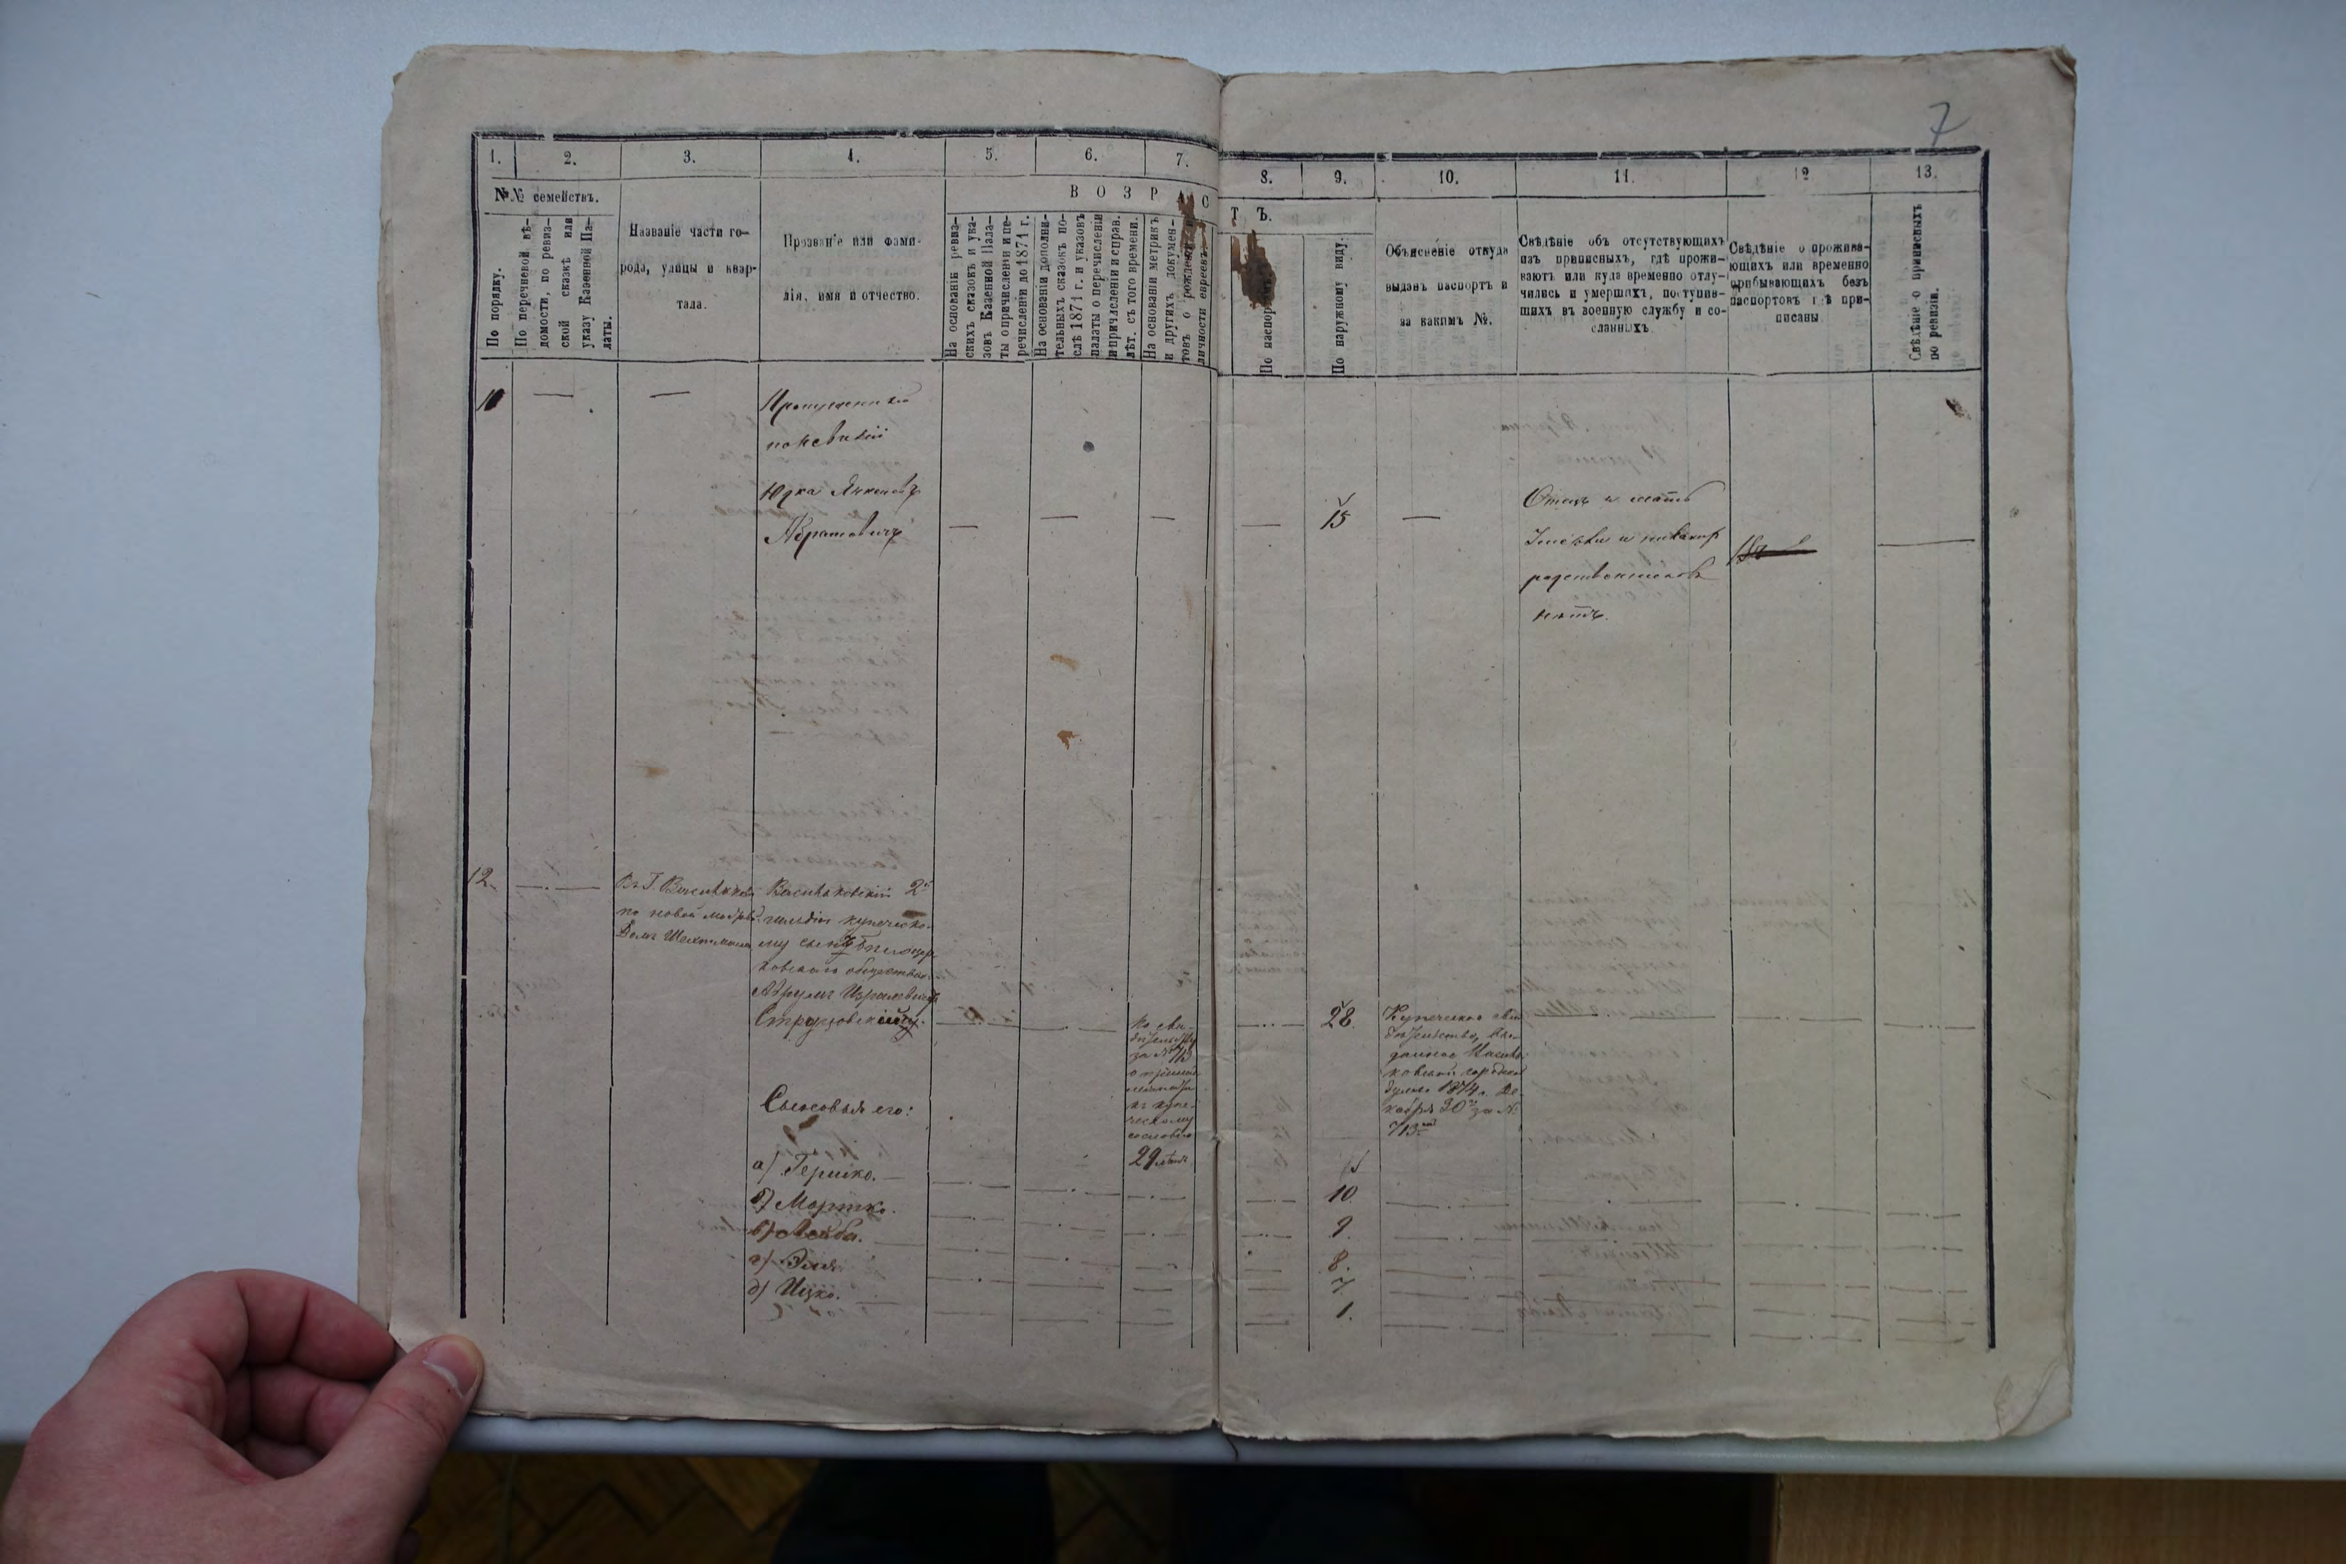 7
1. 2. 3. 4. 5. 6. 7. 8. 9. 10. 11. 12 13.
№№ семействъ.
По порядку.
По перечневой вѣ-
домости, по ревиз-
ской сказкѣ или
указу Казенной Па-
латы.
Названіе части го-
рода, улицы и квар-
тала.
Прозваніе или фами-
лія, имя и отчество.
В О З Р А С Т Ъ.
На основаніи ревиз-
скихъ сказокъ и ука-
зовъ Казенной Пала-
ты о причисленіи и пе-
речисленіи до 1871 г.
На основаніи дополни-
тельныхъ сказокъ по-
слѣ 1871 г. и указовъ
палаты о перечисленіи
и причисленіи и справ.
лѣт. съ того времени.
На основаніи метрикъ
и другихъ докумен-
товъ о рожденіи и
личности евреевъ
По паспортамъ
По наружному виду.
Объясненіе откуда
выданъ паспортъ и
за какимъ №.
Свѣдѣніе объ отсутствующихъ
изъ приписныхъ, гдѣ прожи-
ваютъ или куда временно отлу-
чились и умершихъ, поступив-
шихъ въ военную службу и со-
сланныхъ.
Свѣдѣніе о прожива-
ющихъ или временно
прибывающихъ безъ
паспортовъ гдѣ при-
писаны
Свѣдѣніе о приписныхъ
по ревизіи.
11
Пропущенный
по ревизіи
Юдка Янкелевъ
Абрамовичъ
15
Отецъ и мать
и никакихъ
родственниковъ
нѣтъ.
12
Въ Г. Васильковѣ
по новой
Домъ
Васильковскій 2й
гильдіи купеческо-
му сыну Бѣлоцер-
ковскаго общества
Абрумъ Израилевичъ
28.
По сви-
дѣтельству
за № 713
о
къ купе-
ческому
сословію
29 лѣтъ
Купеческое сви-
дѣтельство, вы-
данное Василь-
ковской городской
думой 1874 г. Де-
кабря 30го за №
713.
Сыновья его:
а) Гершко. 10.
б) Мортко. 9.
в) Лейба. 8.
г) Эля. 7
д) Ицко. 1.